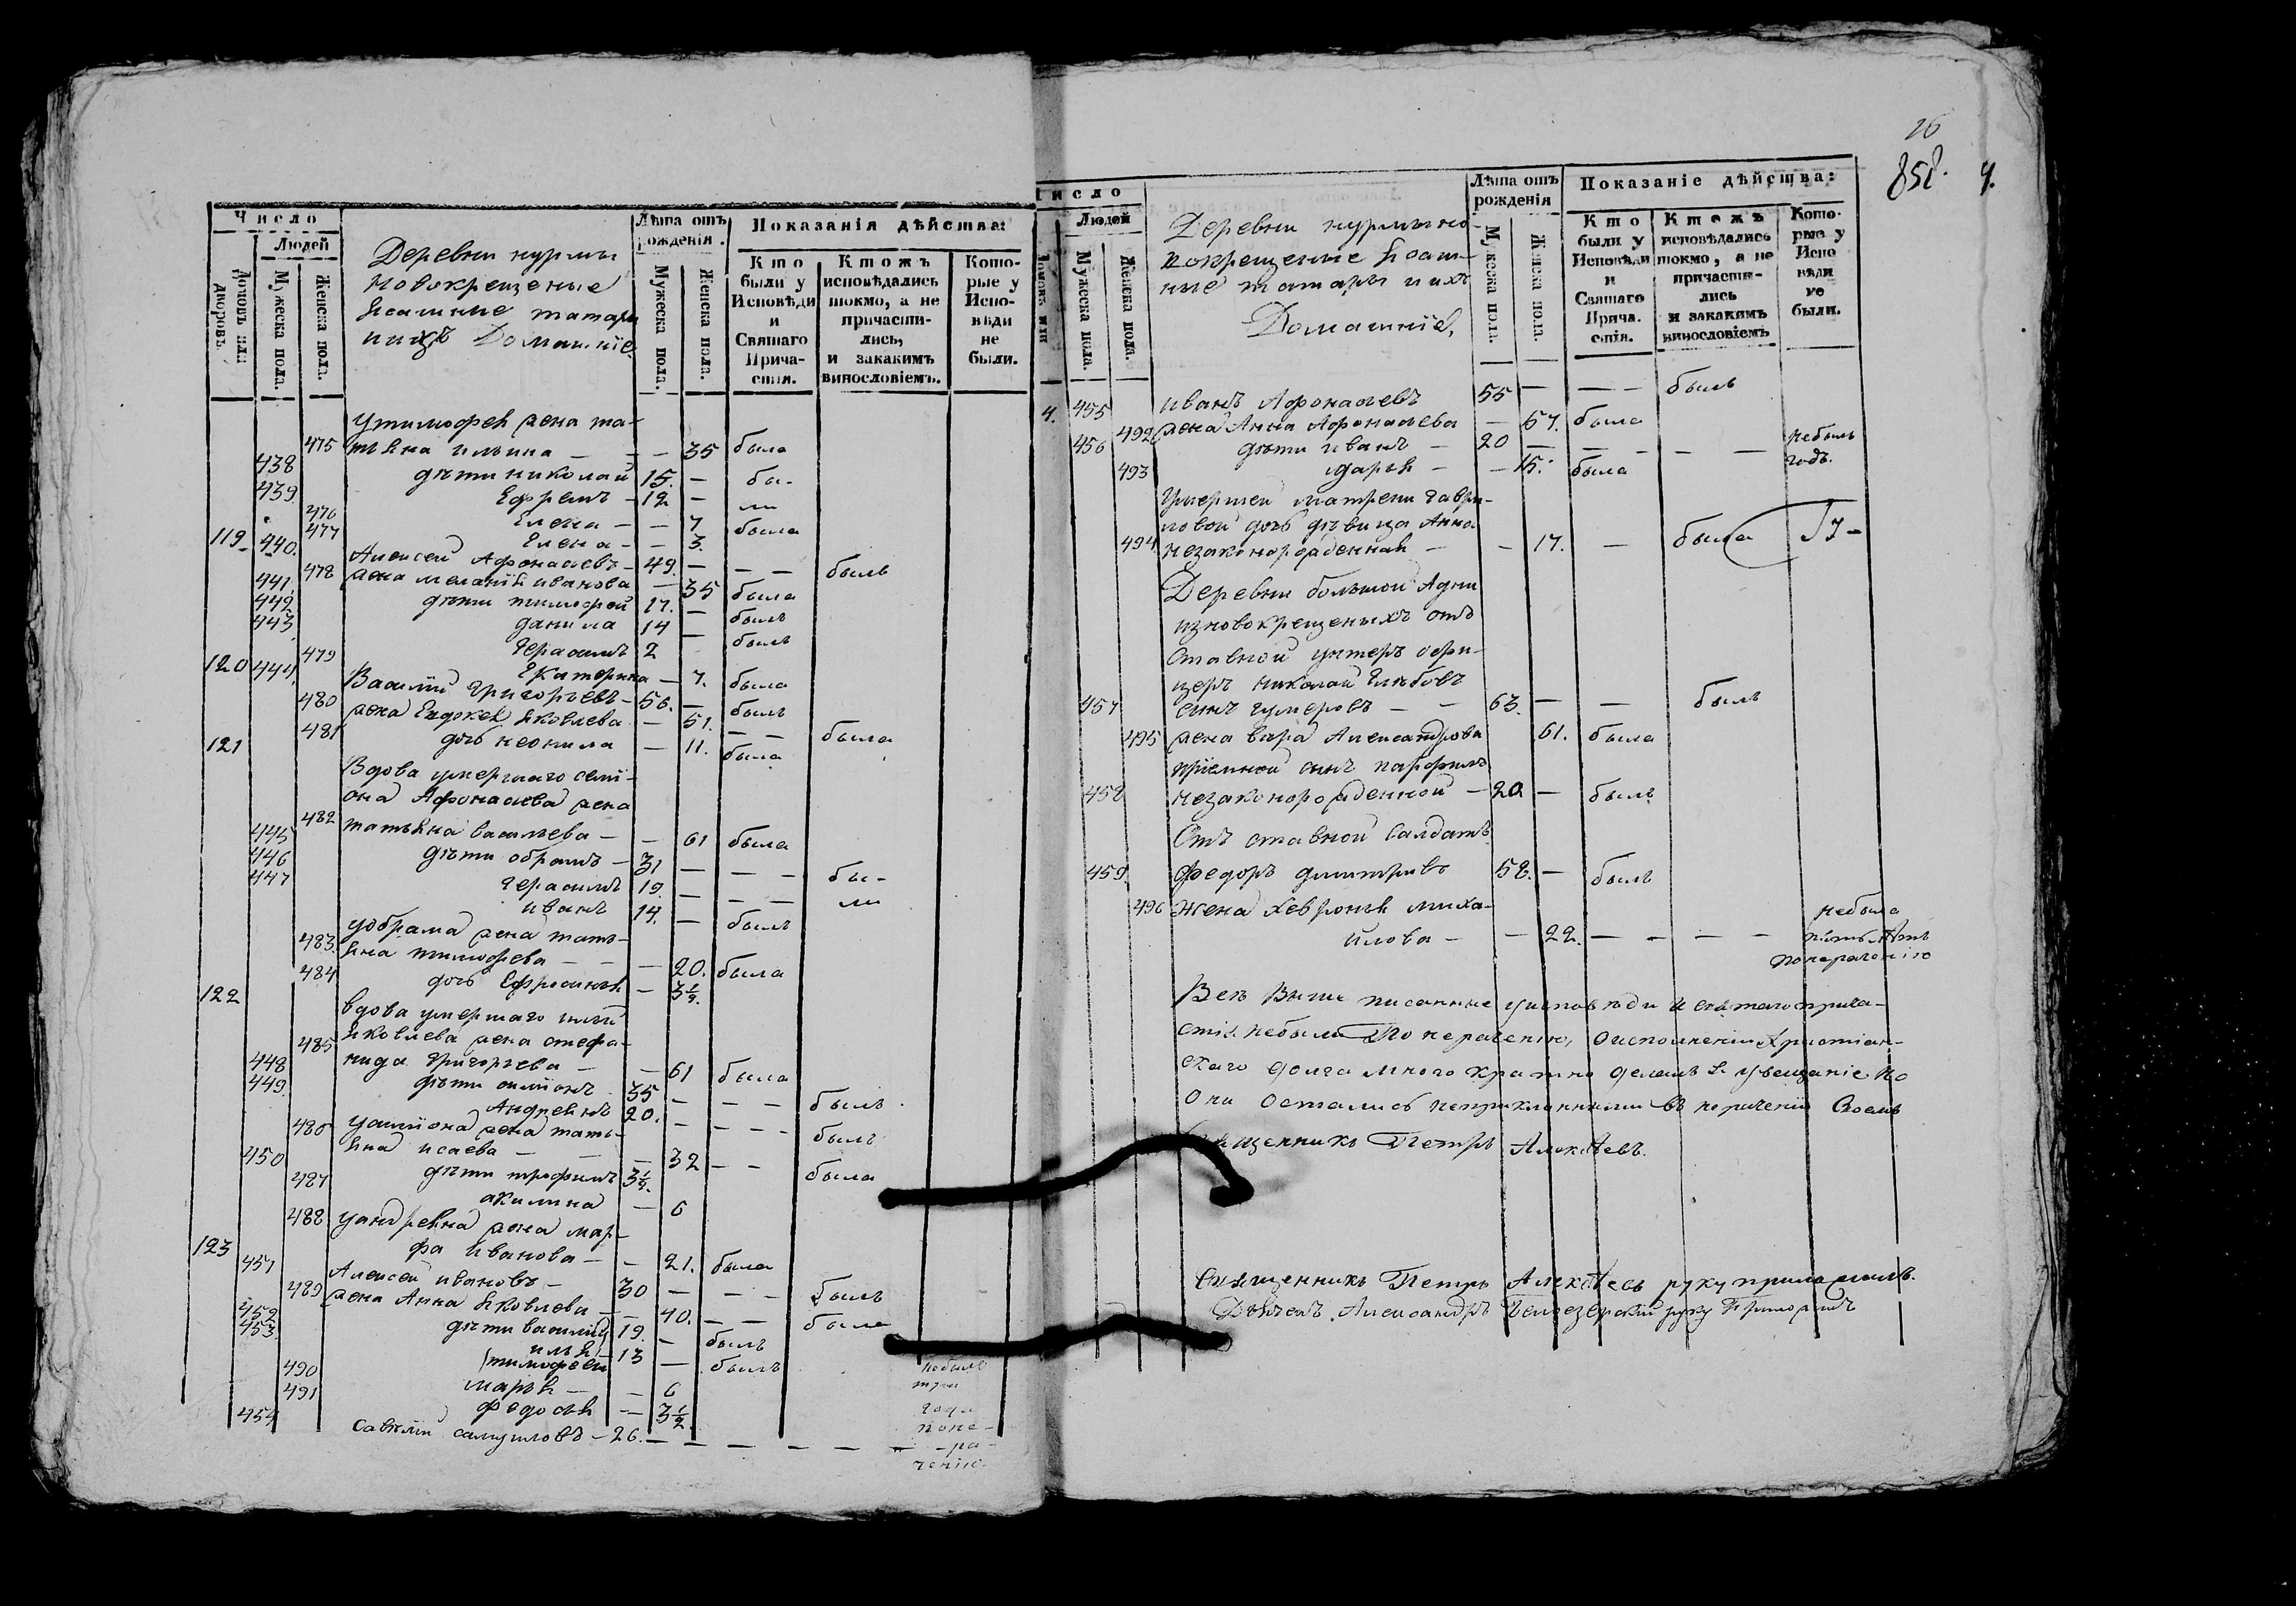 Число
Людей
Домовъ или дворовъ.
Мужеска пола.
Женска пола.
Деревни нурмы
новокрещеные
ясашные татары
и ихъ Домашніе
Лѣта отъ рожденія.
Мужеска пола.
Женска пола.
Показанія дѣйства:
Кто были у Исповѣди и Свяшаго Причастія.
Ктожъ исповѣдались токмо, а не причастились, и закакимъ винословіемъ.
Которые у Исповѣди не были.
у тимофея жена та-
475 тьяна ильина — — 35 была
438 дѣти николай 15. — бы-
439 Ефремъ — 12 — ли
476 Елена — — 7 была
477 Елена — — 3.
119 440. Алексей Афонасьевъ — 49. — — — былъ
478 жена меланія иванова — 35 была
441. дѣти тимофей 17. — былъ
442. данила 14 — былъ
443 Герасимъ 2
479 Екатерина — 7. была
120 444. Василій Григорьевъ — 56. — былъ
480 жена Евдокея яковлева — 51. — — была
481 дочь неонила — 11. была
121 Вдова умершаго семі-
она Афонасьева жена
482 татьяна васильева — — 61 была
445 дѣти абрамъ — 31 — — — бы-
446 Герасимъ 19. — — — ли
447 иванъ 14. — былъ
у абрама жена тать-
483. яна тимофева — — — 20. была
484 дочь Ефросинья — 3½.
122 вдова умершаго
яковлева жена стефа-
485 нида григорьева — — 61 была
448 дѣти симіонъ 35 — — — былъ
449. Андреянъ 20. — — — — былъ
у симіона жена тать-
486 яна исаева — — — 32 — — была
450 дѣти трофимъ 3½.
487 акилина — 6
488 у андреяна жена мар-
фа иванова — — 21. была
123 451 Алексей ивановъ — 30 — — — былъ
489 жена Анна яковлева — — 40. — — была
452 дѣти василий 19. — былъ
453. илья
тимофей 13 — былъ
490 марья — — 6
491 федосья — — 3½.
454 савелій самуиловъ — 26. — — — — — —
небылъ
три
года
по не-
ра-
ченію.
26
858. 4.
Число
Людей
Домовъ или
Мужеска пола.
Женска пола.
Деревни нурмы но-
вокрещеные ясаш-
ные татары и ихъ
Домашніе,
Лѣта отъ рожденія
Мужеска пола.
Женска пола.
Показаніе дѣйства:
Кто были у Исповѣди и Свяшаго Причастія.
Ктожъ исповѣдались токмо, а не причастились и закакимъ винословіемъ
Которые у Исповѣди не были.
4. 455 иванъ Афонасьевъ 55 — — — былъ
492 жена Анна Афонасьева — 57. была
456 дѣти иванъ — 20 — — — — — небылъ
годъ.
493 дарья — — 15. была
Умершей матрены гаври-
ловой дочь дѣвица Анна
494 незаконорожденная — — 17. — была
Деревни большой Адни
изновокрещеныхъ отъ
ставной унтеръ офи-
церъ николай Глѣбовъ
457 сынъ гумеровъ — — 63. — — былъ
495 жена вѣра Александрова 61. была
приемной сынъ парфилъ
458 незаконорожденной — 20 — былъ
Отъ ставной салдатъ
459. федоръ дмитрівъ 58. — былъ
496 жена хевронья миха-
илова — — 22. — — — — небыла
пять лѣтъ
понераченію
Всѣ Выше писанные у исповѣди и святаго прича-
стія. небыли По нераченію, о исполненіи Христіан-
скаго долга много кратно делалъ я увещаніе. но
они остались непреклонными въ нераченіи Своемъ
Священникъ Петръ Алексѣевъ.
Священникъ Петръ Алексѣевъ руку приложилъ.
Дьячекъ Александръ Белоезерский руку Приложилъ